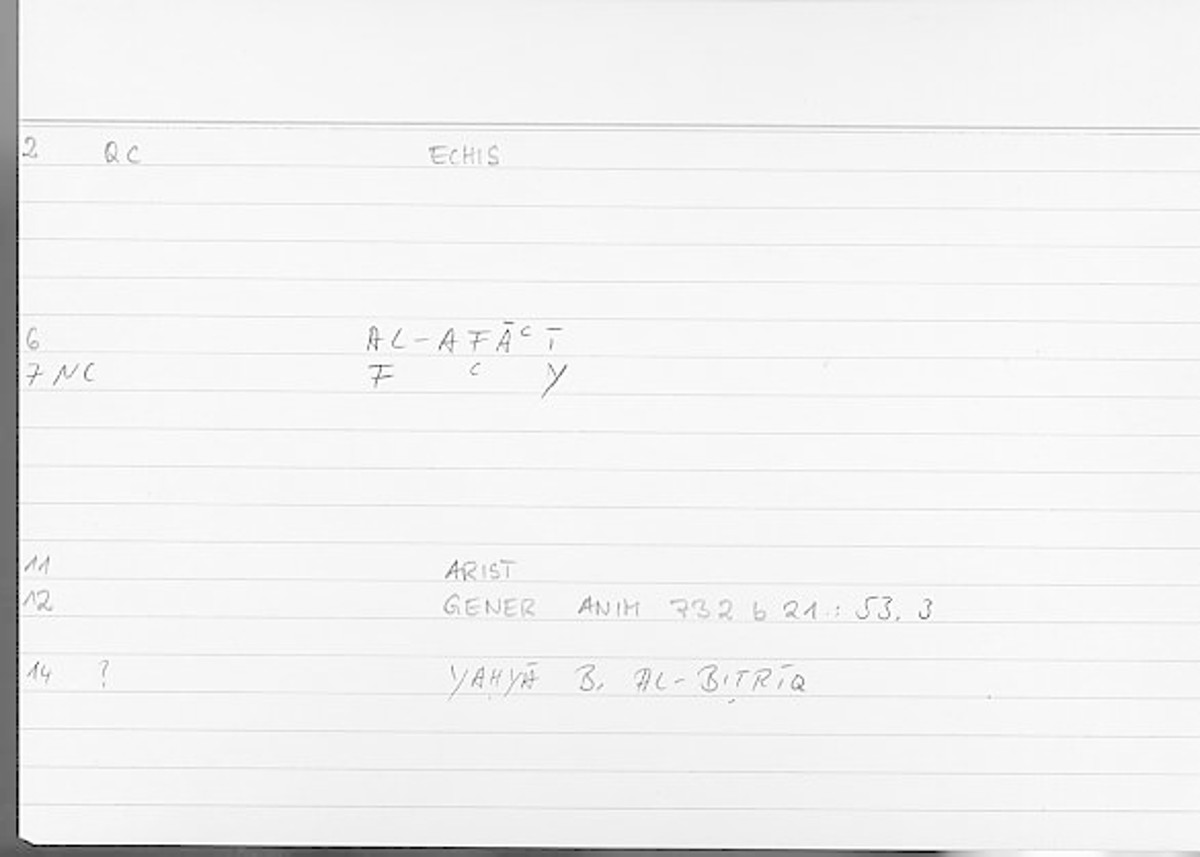 2 QC ECHIS
6 AL-AFĀᶜĪ
7 NC F ᶜ Y
11 ARIST
12 GENER ANIM 732 b 21 : 53, 3
14 ? YAḤYĀ B. AL-BIṬRĪQ